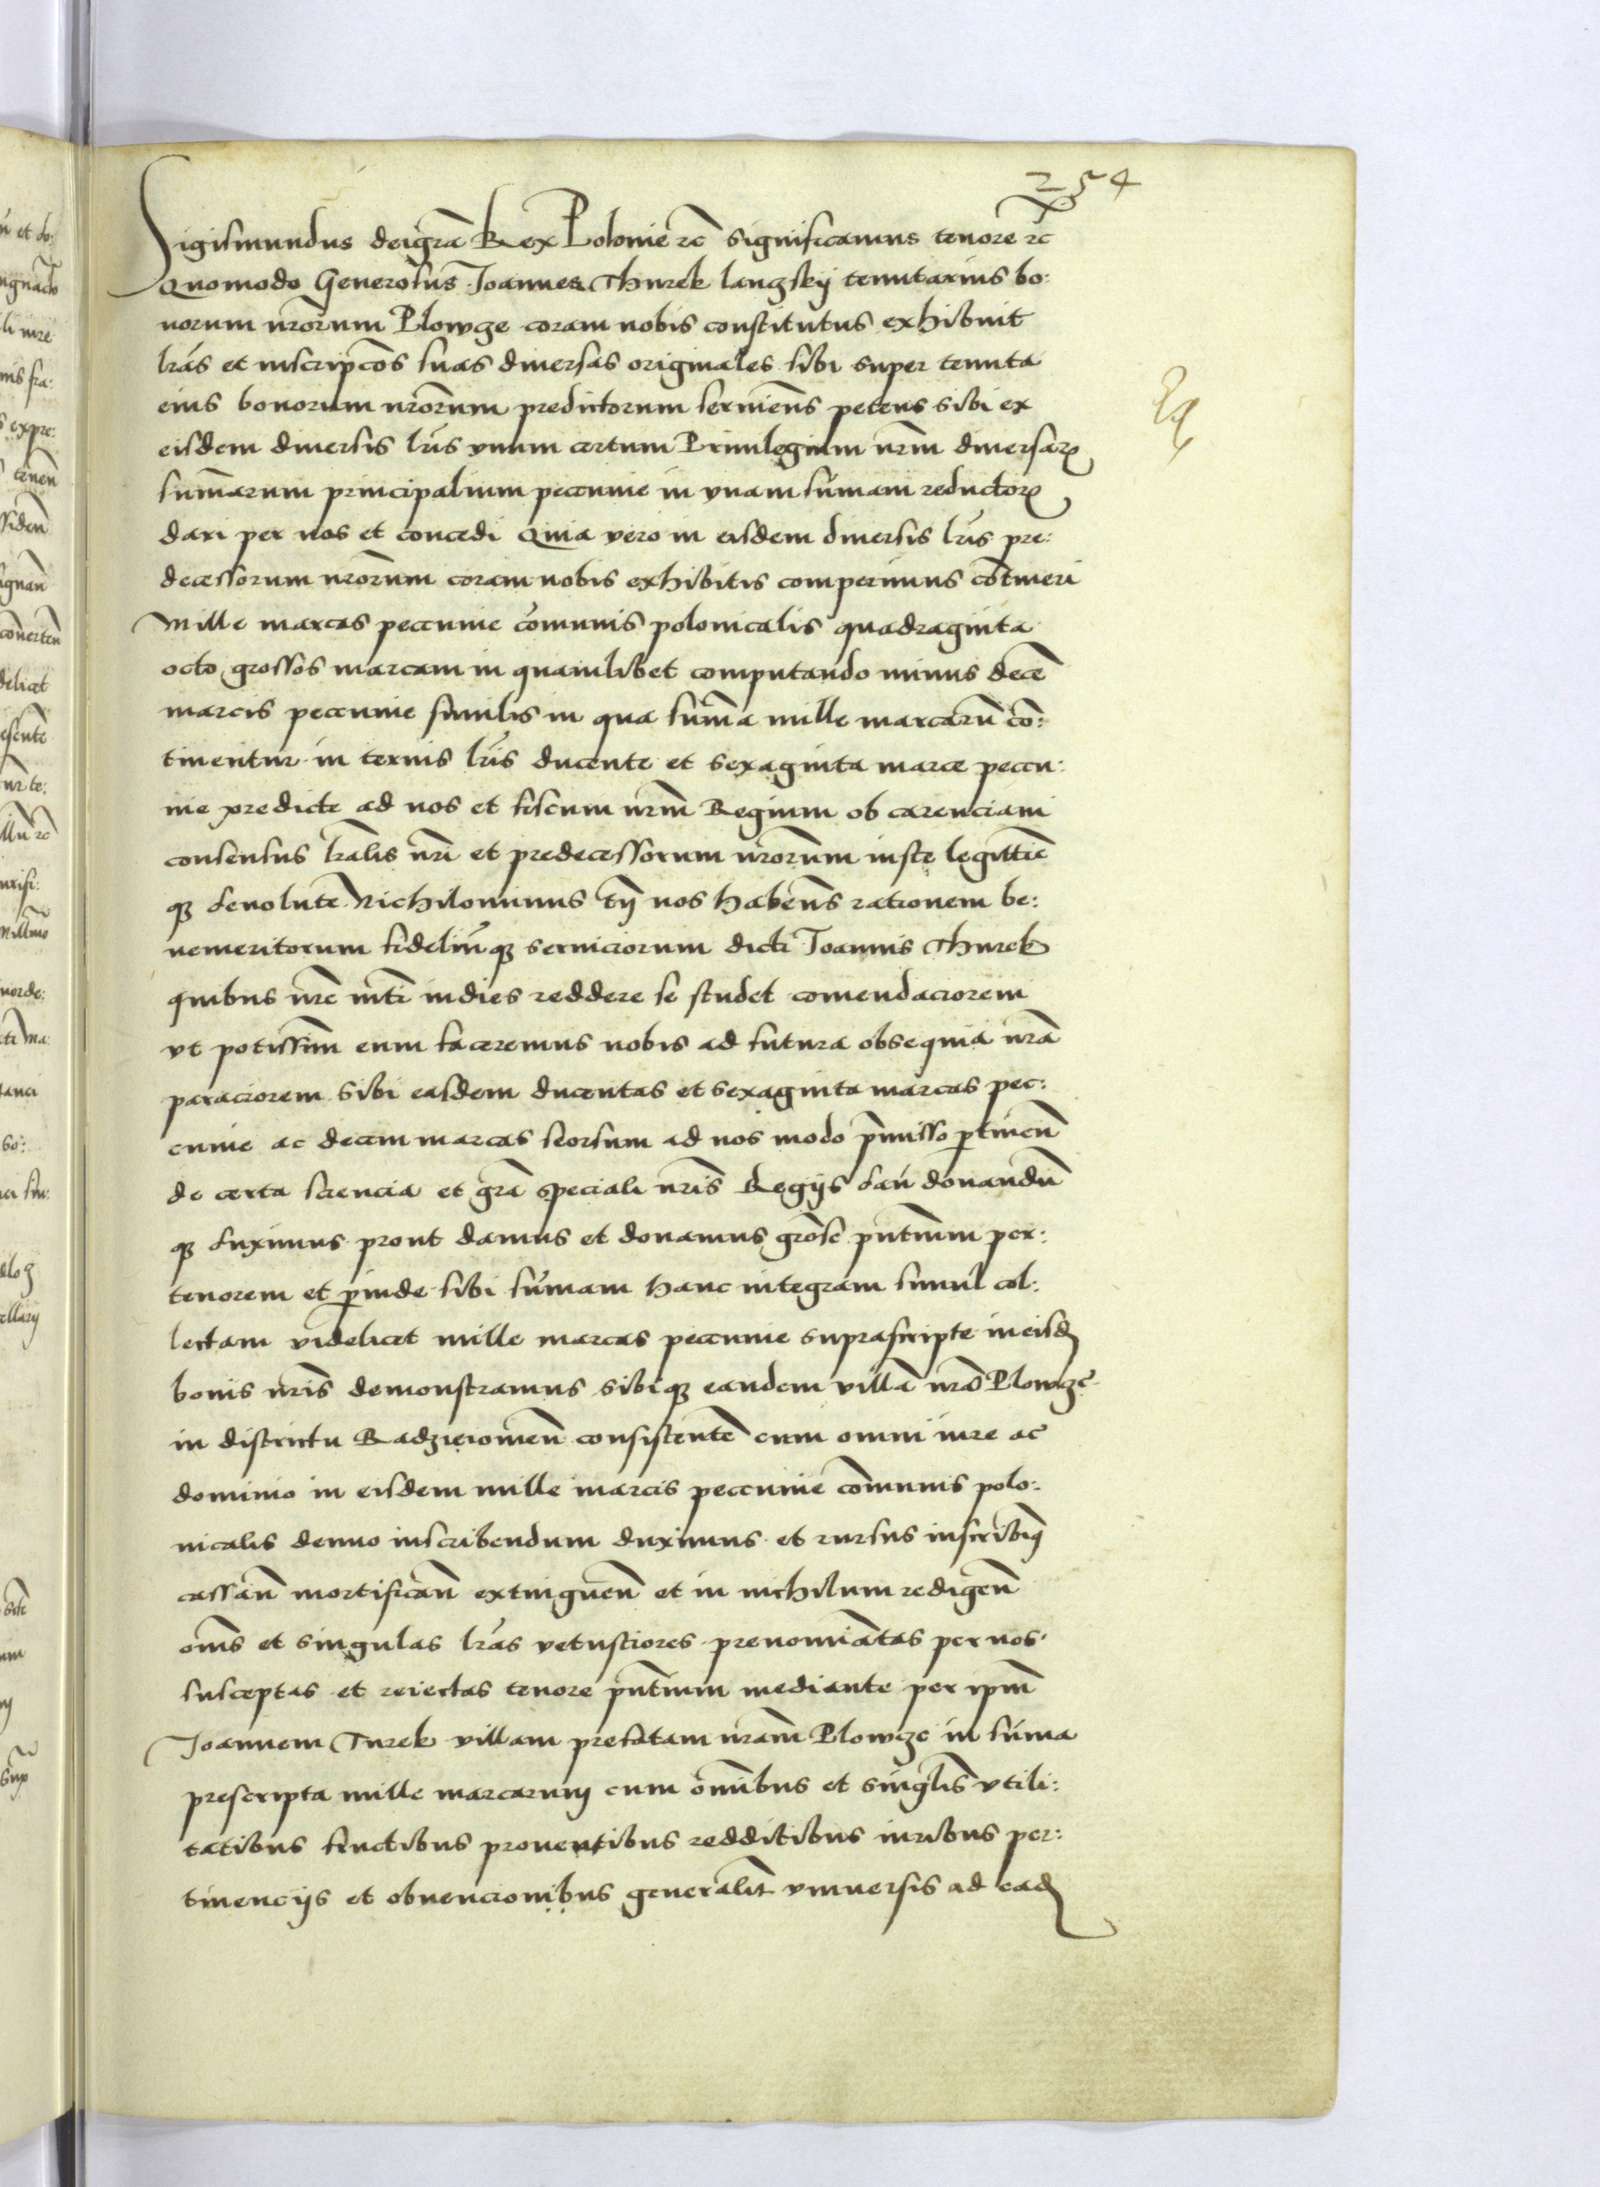 254
Sigismundus dei grã Rex Polonie rc̃ significamus tenore rc̃
Quomodo Generosus Joannes Thurek langskij tenutarius bo:
norum nrõrum Plowge coram nobis constitutus exhibuit
lrãs et inscripcõs suas diuersas originales sibi super tenuta
eius bonorum nrõrum predictorum seruiens̃ petens sibi ex
eisdem diuersis lrĩs vnum certum Priuilegium nrm̃ diuersarꝝ
sum̃arum principalium peccunie in vnam sum̃am reductorꝝ
dari per nos et concedi Quia vero in eisdem diuersis lrĩs pre:
decessorum nrõrum coram nobis exhibitis comperimus cõtineri
Mille marcas peccunie cõmunis polonicalis quadraginta
octo grossos marcam in quamlibet computando minus decẽ
marcis peccunie similis in qua sum̃a mille marcarũ cõ:
tinentur in ternis lrĩs ducente et sexaginta marce peccu:
nie predicte ad nos et fiscum nrm̃ Regium ob carenciam
consensus lrãlis nrĩ et predecessorum nrõrum iuste legittiẽ
qꝫ deuolute Nichilominus tñ nos habens̃ rationem be:
nemeritorum fideliũqꝫ seruiciorum dicti Joannis Thurek
quibus nrẽ mti̇̃ indies reddere se studet comendaciorem
vt potissim̃ eum faceremus nobis ad futura obsequia nrã
paraciorem sibi easdem ducentas et sexaginta marcas pec:
cunie ac decem marcas seorsum ad nos modo p̃misso ꝑtineñ
de certa sciencia et grã speciali nrĩs Regijs dañ donandũ
qꝫ duximus prout damus et donamus grõse pñtium per:
tenorem et ꝑinde sibi sum̃am hanc integram simul col:
lectam videlicet mille marcas peccunie suprascripte in eisdꝫ
bonis nrĩs demonstramus sibiqꝫ eandem villã nrã Plowze
in districtu Radzieiouieñ consistentẽ cum omni iure ac
dominio in eisdem mille marcis peccunie cõmunis polo:
nicalis denuo inscribendum duximus et rursus inscribimꝰ
cassañ mortificañ extingueñ et in nichilum redigeñ
oms̃ et singulas lrãs vetustiores prenomiãtas per nos
susceptas et reiectas tenore pñtium mediante per ipm̃
Joannem Turek villam prefatam nrãm Plowze in sum̃a
prescripta mille marcarum cum om̃ibus et singlis̃ vtili:
tatibus fructibus prouentibus redditibus iuribus per:
tinencijs et obuencionibus generalit̃ vniuersis ad eadꝫ